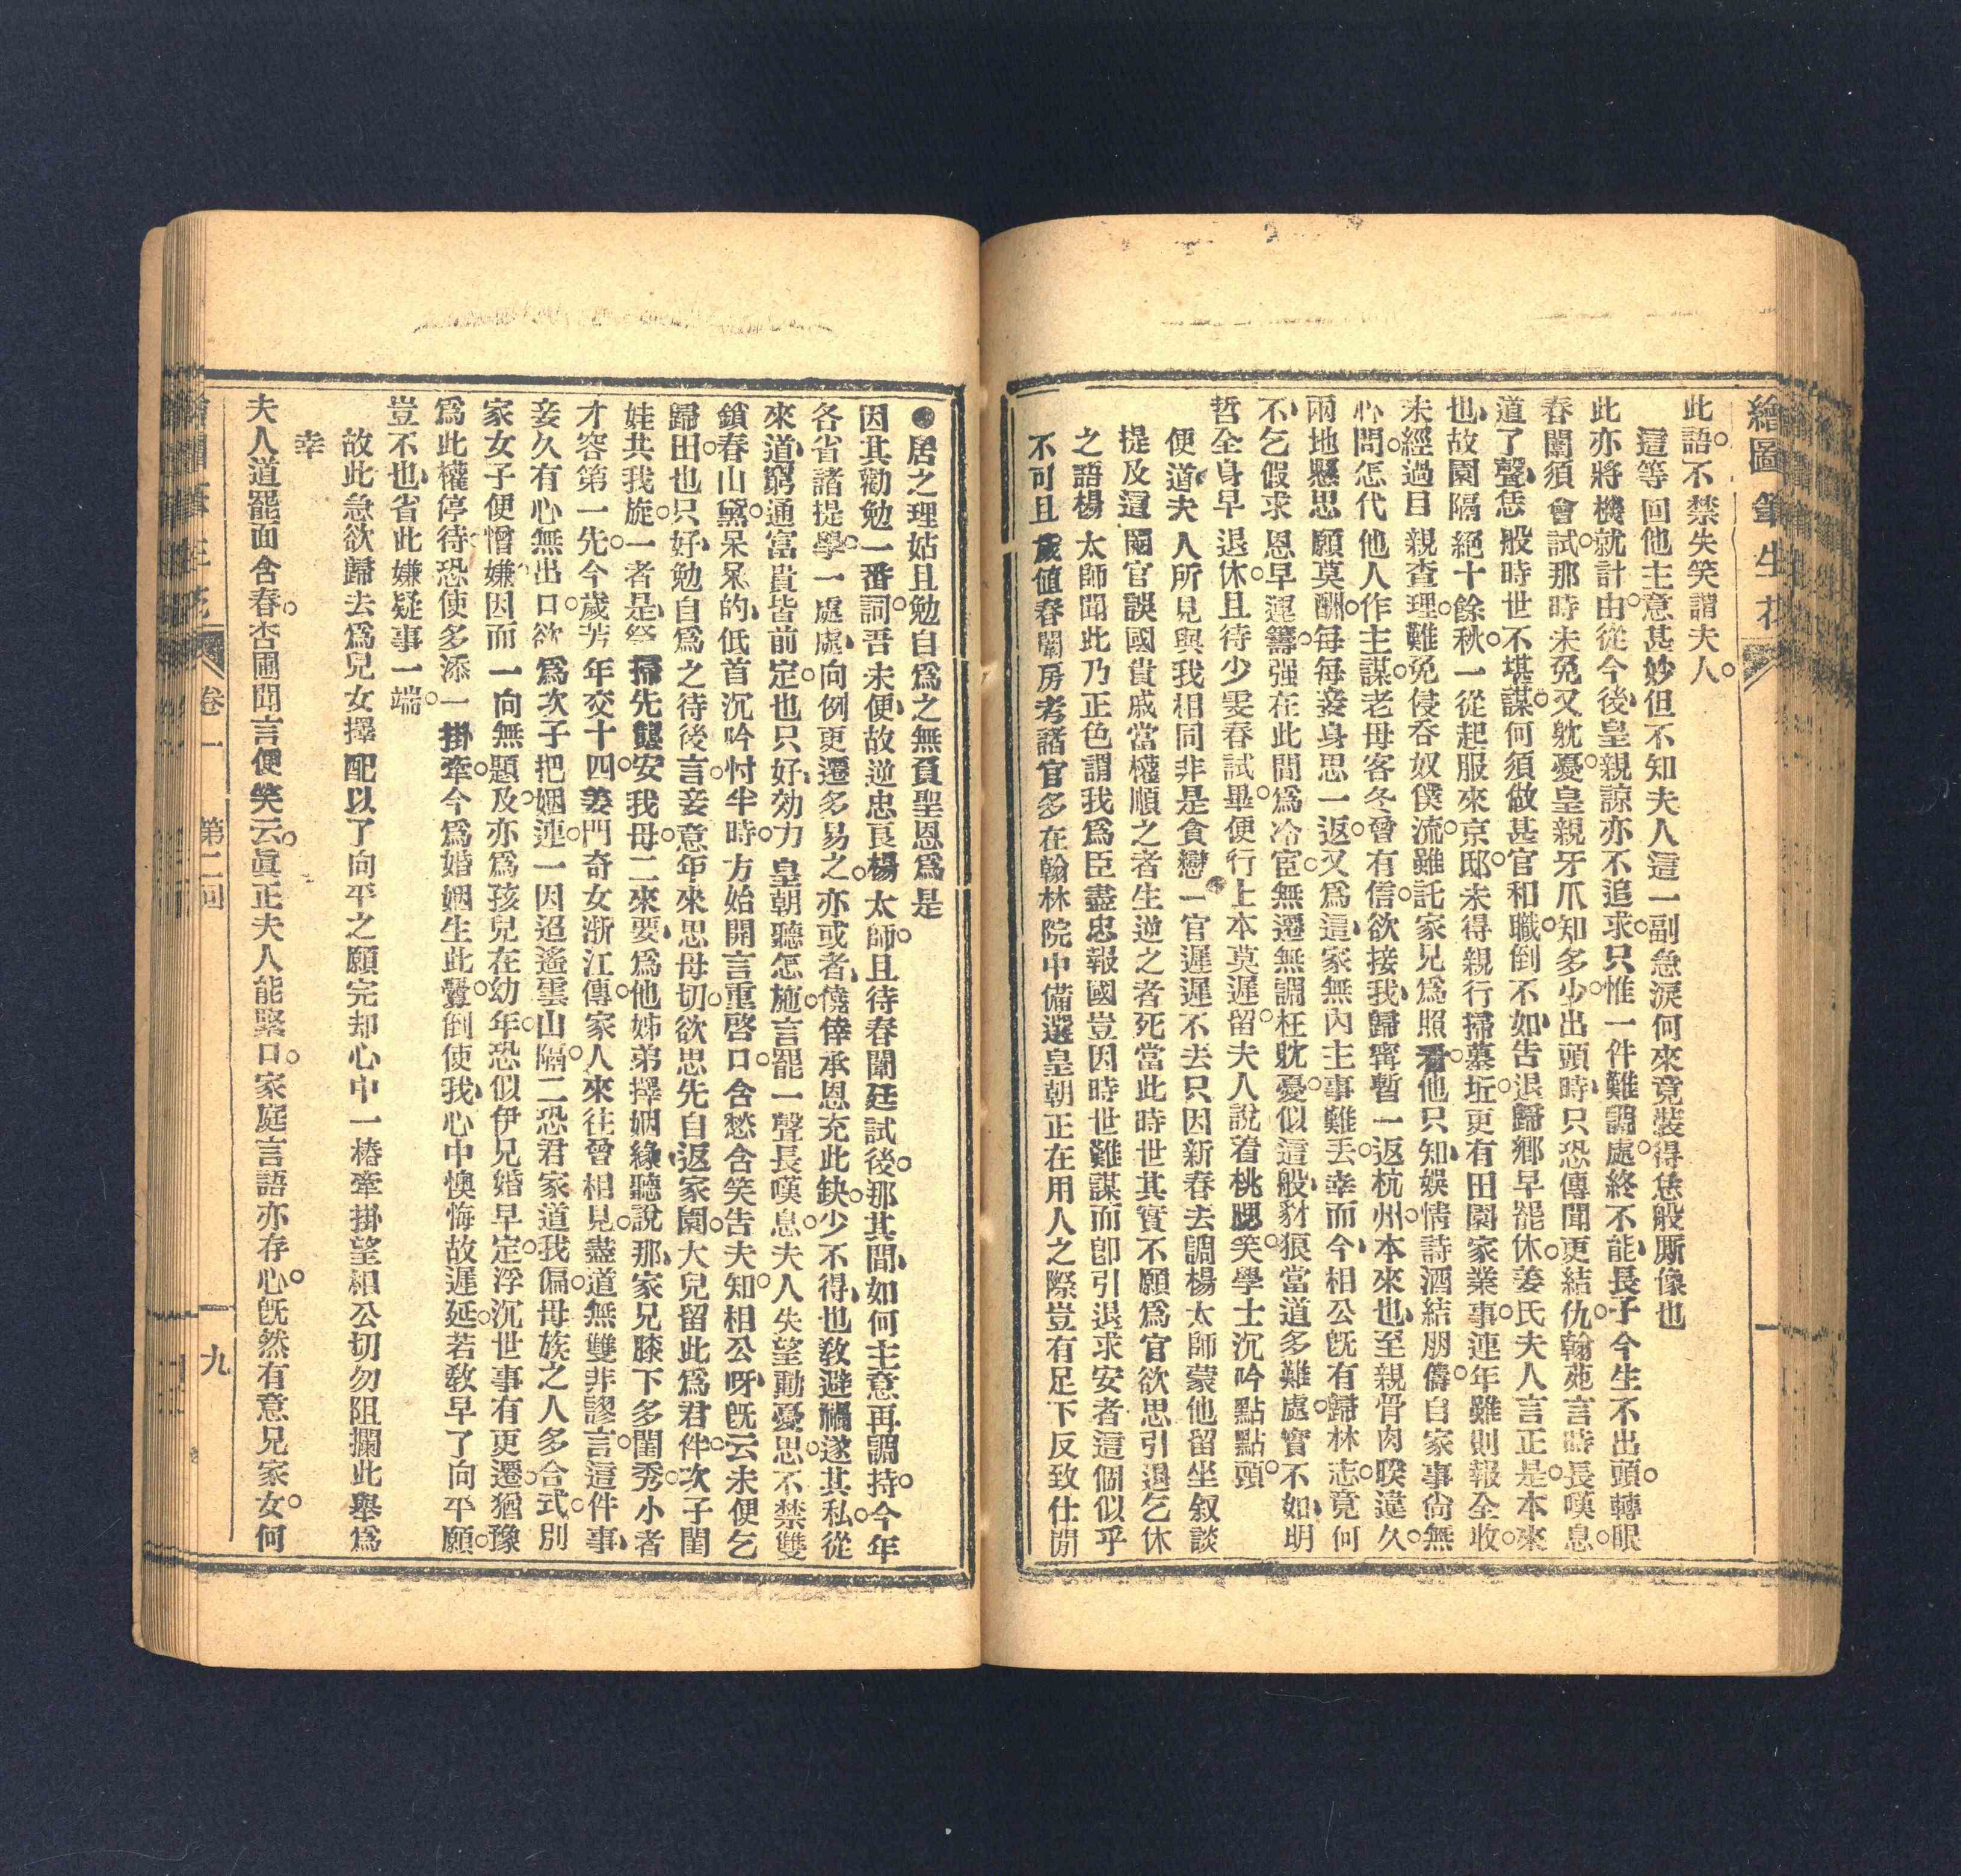 繪圖筆生花
此語不禁失笑謂夫人
這等回他主意甚妙但不知夫人這一副急淚何來竟裝得恁般厮像也
此亦將機就計由從今後皇親諒亦不追求只惟一件難調處終不能長子今生不出頭轉眼
春闈須會試那時未免又躭憂皇親牙爪知多少出頭時只恐傳聞更結仇翰苑言時長嘆息
道了聲恁般時世不堪謀何須做甚官和職倒不如告退歸鄉早罷休姜氏夫人言正是本來
也故園隔絕十餘秋一從起服來京邸未得親行掃墓坵更有田園家業事連年雖則報全收
未經過目親查理難免侵吞奴僕流雖託家兄爲照看他只知娛情詩酒結朋儔自家事尙無
心問怎代他人作主謀老母客冬曾有信欲接我歸寧暫一返杭州本來也至親骨肉暌違久
兩地懸思願莫酬每每妾身思一返又爲這家無內主事難丟幸而今相公旣有歸林志竟何
不乞假求恩早運籌强在此間爲冷宦無遷無調枉躭憂似這般豺狼當道多難處實不如明
哲全身早退休且待少雯春試畢便行上本莫遲留夫人說着桃腮笑學士沉吟點點頭
便道夫人所見與我相同非是貪戀一官遲遲不去只因新春去謁楊太師蒙他留坐叙談
提及這閹官誤國貴戚當權順之者生逆之者死當此時世其實不願爲官欲思引退乞休
之語楊太師聞此乃正色謂我爲臣盡忠報國豈因時世難謀而卽引退求安者這個似乎
不可且歲值春闈房考諸官多在翰林院中備選皇朝正在用人之際豈有足下反致仕閒
居之理姑且勉自爲之無負聖恩爲是
因其勸勉一番詞吾未便故逆忠良楊太師且待春闈廷試後那其間如何主意再調持今年
各省諸提學一處處向例更遷多易之亦或者僥倖承恩充此缺少不得也敎避禍遂其私從
來道窮通富貴皆前定也只好効力皇朝聽怎施言罷一聲長嘆息夫人失望動憂思不禁雙
鎖春山黛呆呆的低首沉吟忖半時方始開言重啓口含愁含笑告夫知相公呀旣云未便乞
歸田也只好勉自爲之待後言妾意年來思母切欲思先自返家園大兒留此爲君伴次子閨
娃共我旋一者是祭掃先塋安我母二來要爲他姊弟擇姻緣聽說那家兄膝下多閨秀小者
才容第一先今歲芳年交十四姜門奇女浙江傳家人來往曾相見盡道無雙非謬言這件事
妾久有心無出口欲爲次子把姻連一因迢遙雲山隔二恐君家道我偏母族之人多合式別
家女子便憎嫌因而一向無題及亦爲孩兒在幼年恐似伊兄婚早定浮沉世事有更遷猶豫
爲此權停待恐使多添一掛牽今爲婚姻生此釁倒使我心中懊悔故遲延若敎早了向平願
豈不也省此嫌疑事一端
故此急欲歸去爲兒女擇配以了向平之願完却心中一樁牽掛望相公切勿阻攔此舉爲
幸
夫人道罷面含春杏圃聞言便笑云眞正夫人能緊口家庭言語亦存心旣然有意兄家女何
卷一 第二回 九